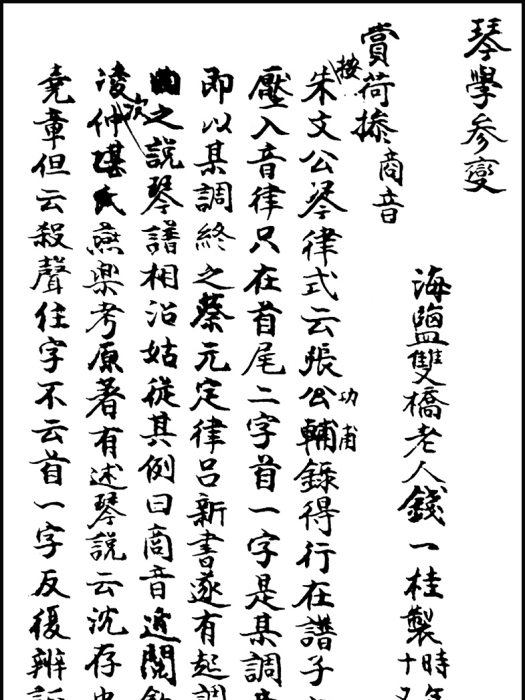 琴學參變
海鹽雙橋老人錢一桂製時年十又
賞荷㨗商音
按朱文公琴律式云張公功甫輔錄得行在譜子
壓入音律只在首尾二字首一字是某調
即以某調終之蔡元定律呂新書遂有起調
曲之說琴譜相沿姑從其例曰商音近閱
凌次仲堪氏燕樂考原著有述琴說云沈存
堯章但云殺聲住字不云首一字反復辨